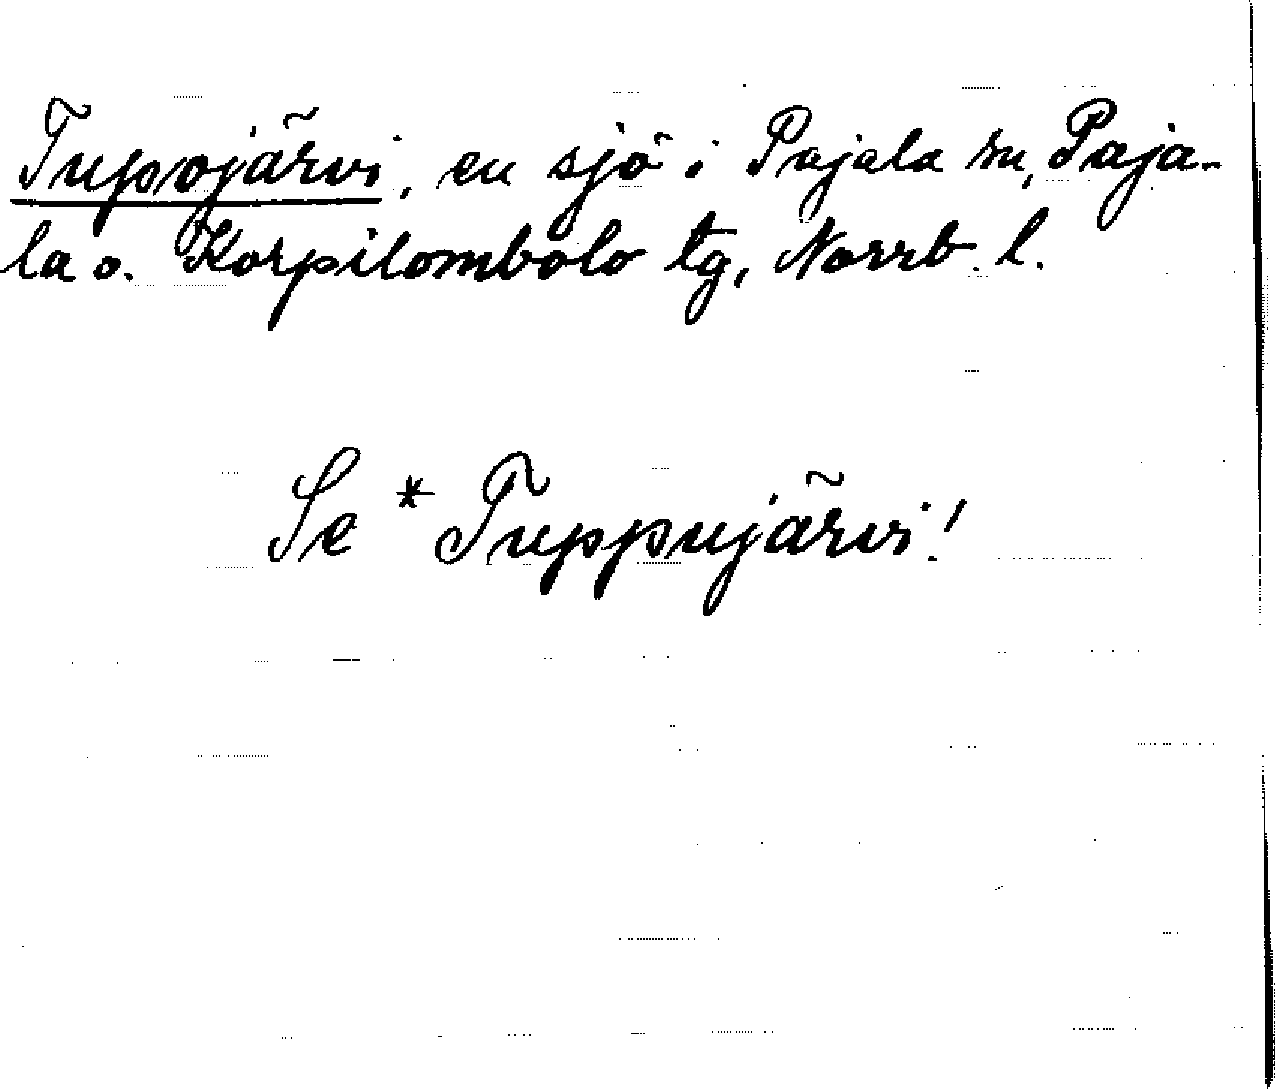 Tupojärvi, en sjö i Pajala sn, Paja-
la o. Korpilombolo tg, Norrb. l.
Se * Tuppujärvi!